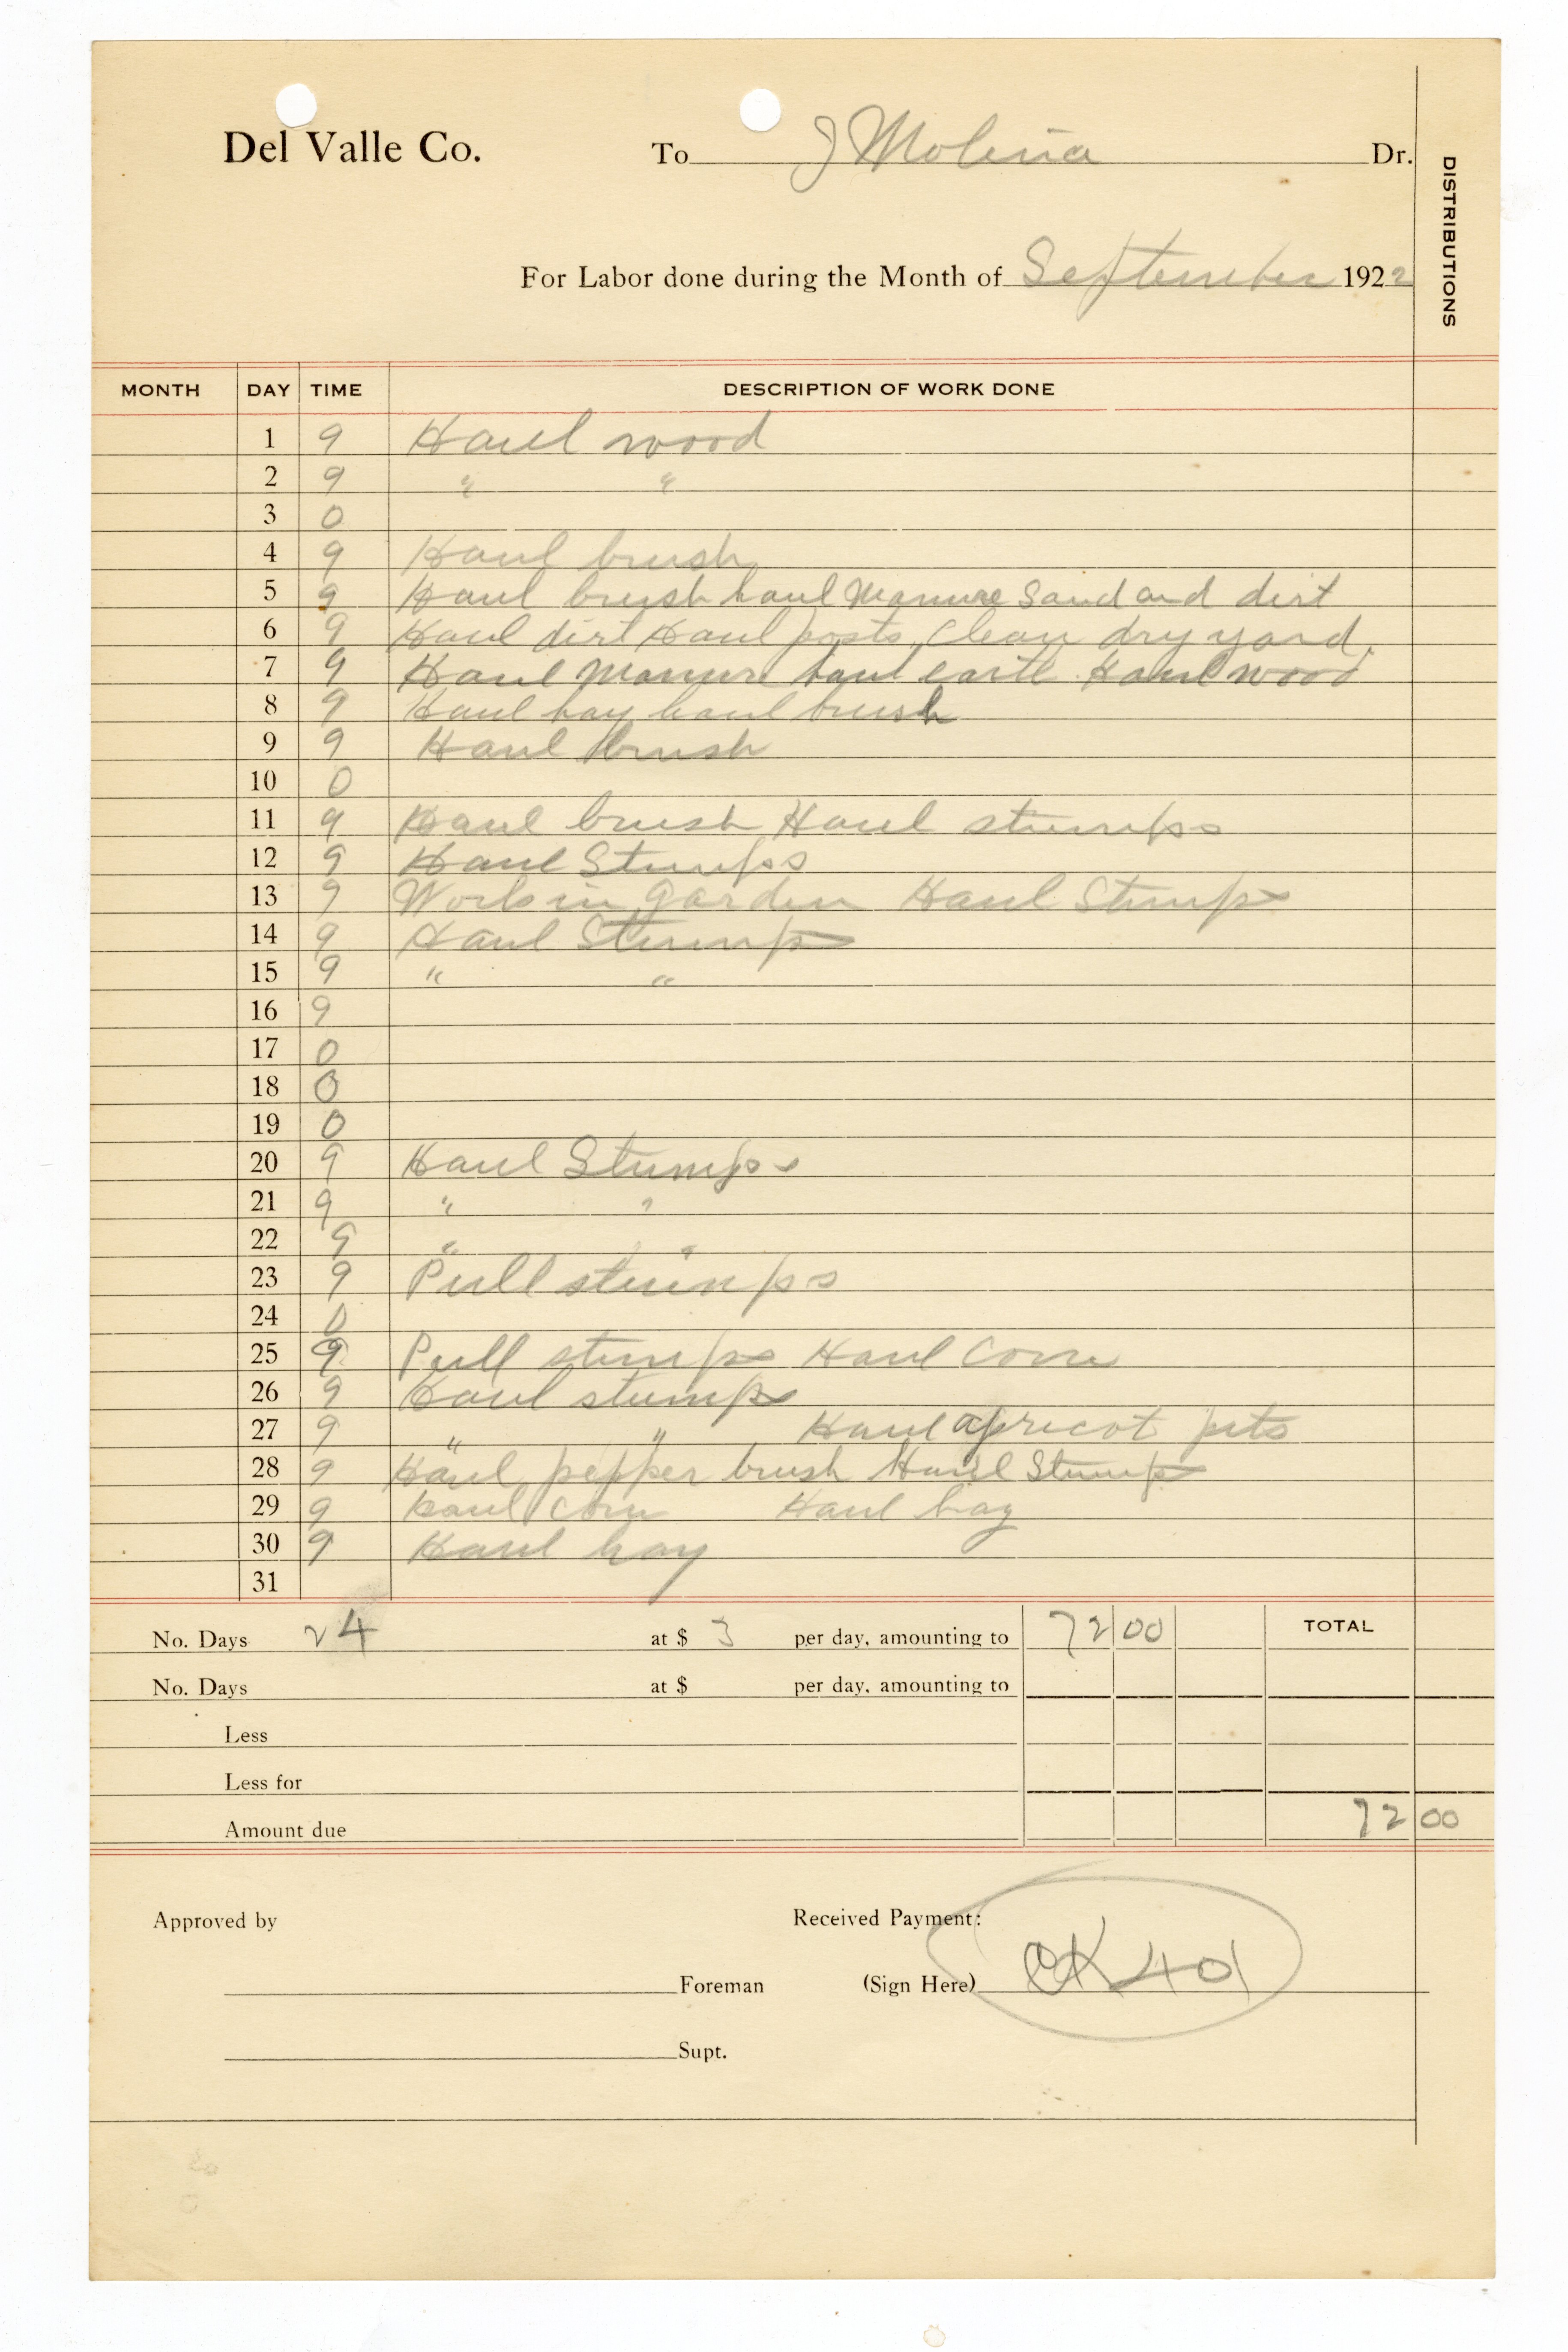 Del Valle Co. To J Molina Dr.
DISTRIBUTIONS
For Labor done during the Month of September 1922
MONTH DAY TIME DESCRIPTION OF WORK DONE
1 9 Haul wood
2 9 " "
3 0
4 9 Haul brush
5 9 Haul brush haul Manure Sand and dirt
6 9 Haul dirt Haul posts, Clean dry yard.
7 9 Haul Manure haul earth Haul wood
8 9 Haul hay haul brush
9 9 Haul brush
10 0
11 9 Haul brush Haul stumps
12 9 Haul Stumps
13 9 Work in garden Haul Stumps
14 9 Haul Stumps
15 9 " "
16 9
17 0
18 0
19 0
20 9 Haul Stumps
21 9 " "
22 9 " "
23 9 Pull stumps
24 0
25 9 Pull stumps Haul Corn
26 9 Haul stumps
27 9 " " Haul apricot pits
28 9 Haul pepper brush Haul Stumps
29 9 Haul corn Haul hay
30 9 Haul hay
31
No. Days 24 at $ 3 per day, amounting to 72 00 TOTAL
No. Days at $ per day, amounting to
Less
Less for
Amount due 72 00
Approved by Received Payment:
Foreman (Sign Here) CK 401
Supt.